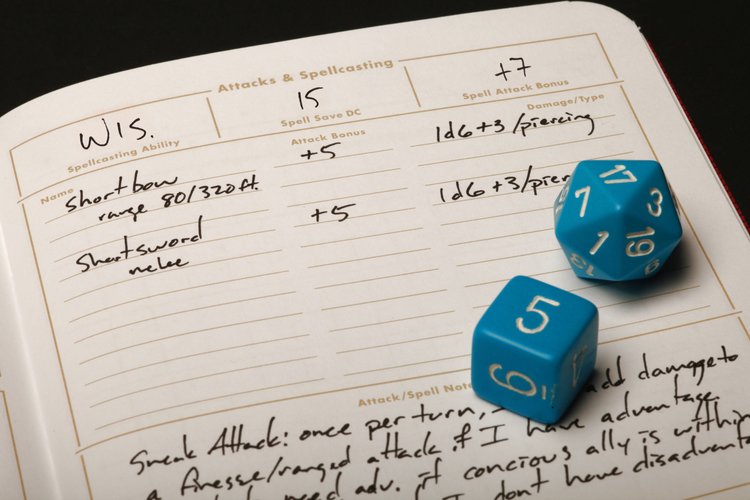 Attacks & Spellcasting
WIS.
15
+7
Spellcasting Ability
Spell Save DC
Spell Attack Bonus
Name
Attack Bonus
Damage/Type
shortbow
+5
1d6+3/piercing
range 80/320ft.
Shortsword
+5
1d6+3/pier
melee
17
7
3
1
19
5
6
Attack/Spell Note
Sneak Attack: once per turn, add damage to
a finesse/ranged attack if I have advantage.
need adv. if concious ally is within
I don't have disadvant